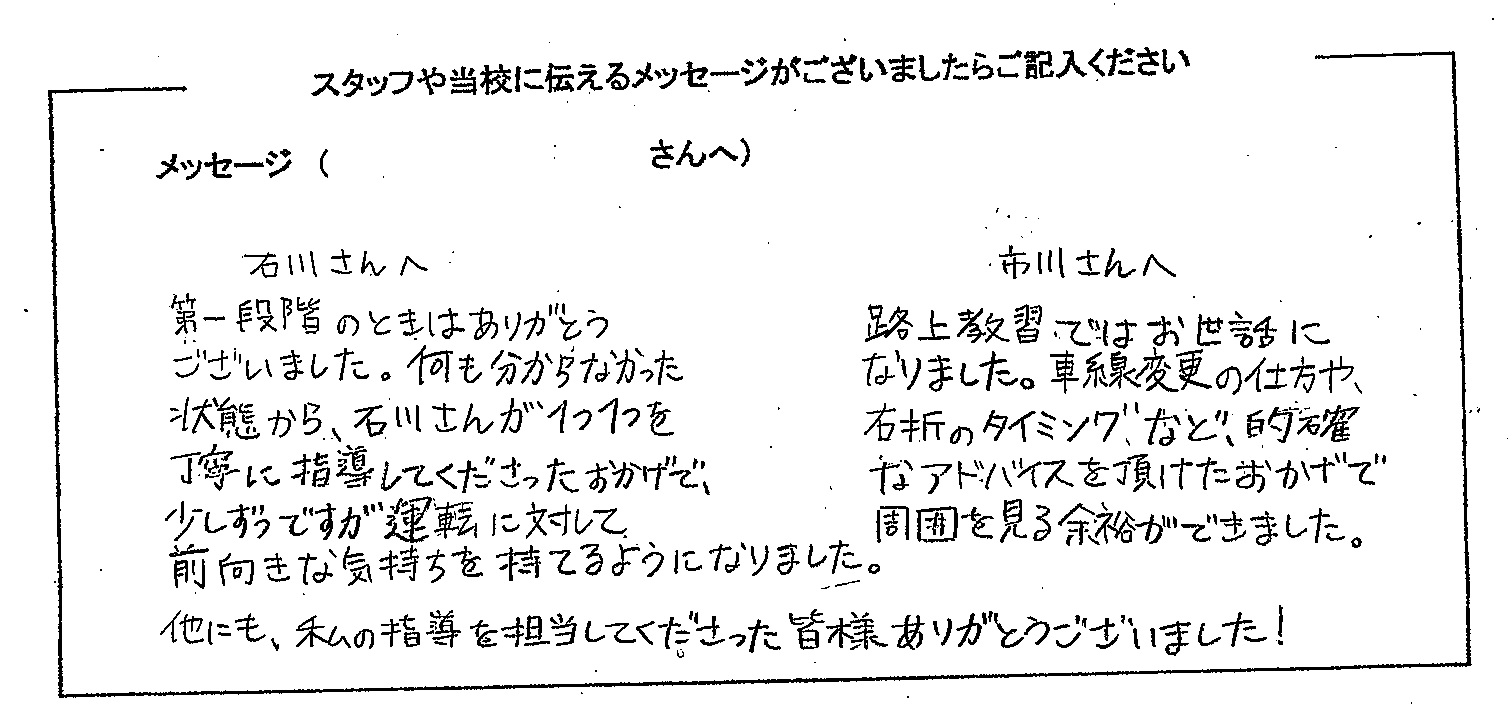 スタッフや当校に伝えるメッセージがございましたらご記入ください
メッセージ（　　　　　　　　　　さんへ）
石川さんへ
第一段階のときはありがとう
ございました。何も分からなかった
状態から、石川さんが1つ1つを
丁寧に指導してくださったおかげで、
少しずつですが運転に対して
前向きな気持ちを持てるようになりました。
市川さんへ
路上教習ではお世話に
なりました。車線変更の仕方や、
右折のタイミングなど、的確
なアドバイスを頂けたおかげで
周囲を見る余裕ができました。
他にも、私の指導を担当してくださった皆様ありがとうございました！